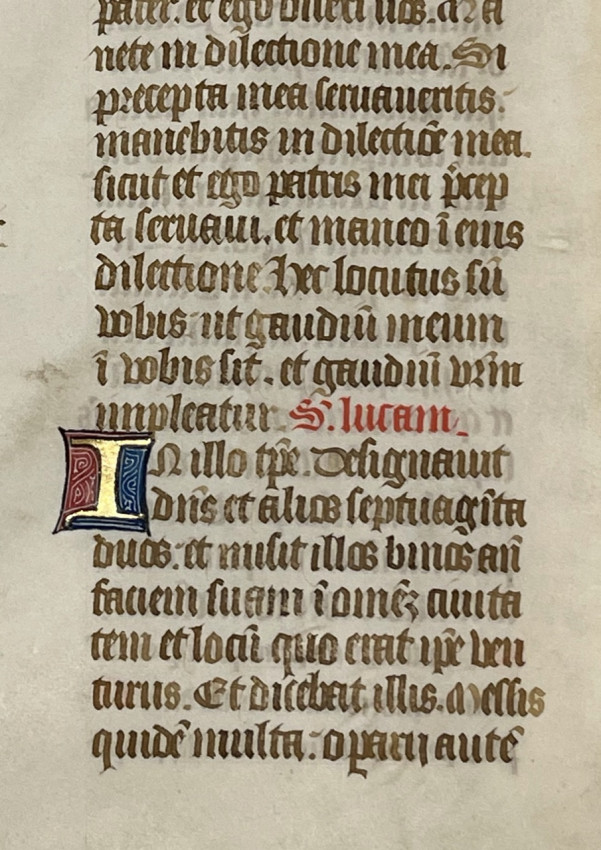 pater. et ego dilexi uos. Ma
nete in dilectione mea. Si
precepta mea seruaueritis.
manebitis in dilectiõe mea.
sicut et ego patris mei p̃cep
ta seruaui. et maneo ĩ eius
dilectione. Hec locutus sũ
vobis ut gaudiũ meum
ĩ vobis sit. et gaudiũ vr̃m
impleatur. S. lucam.
IN illo tp̃e. Designauit
dñs et alios septuagĩta
duos. et misit illos binos añ
faciem suam ĩ omẽꝫ ciuita
tem et locũ quo erat ip̃e ven
turus. Et dicebat illis. Messis
quidẽ multa. oꝑarij autẽ